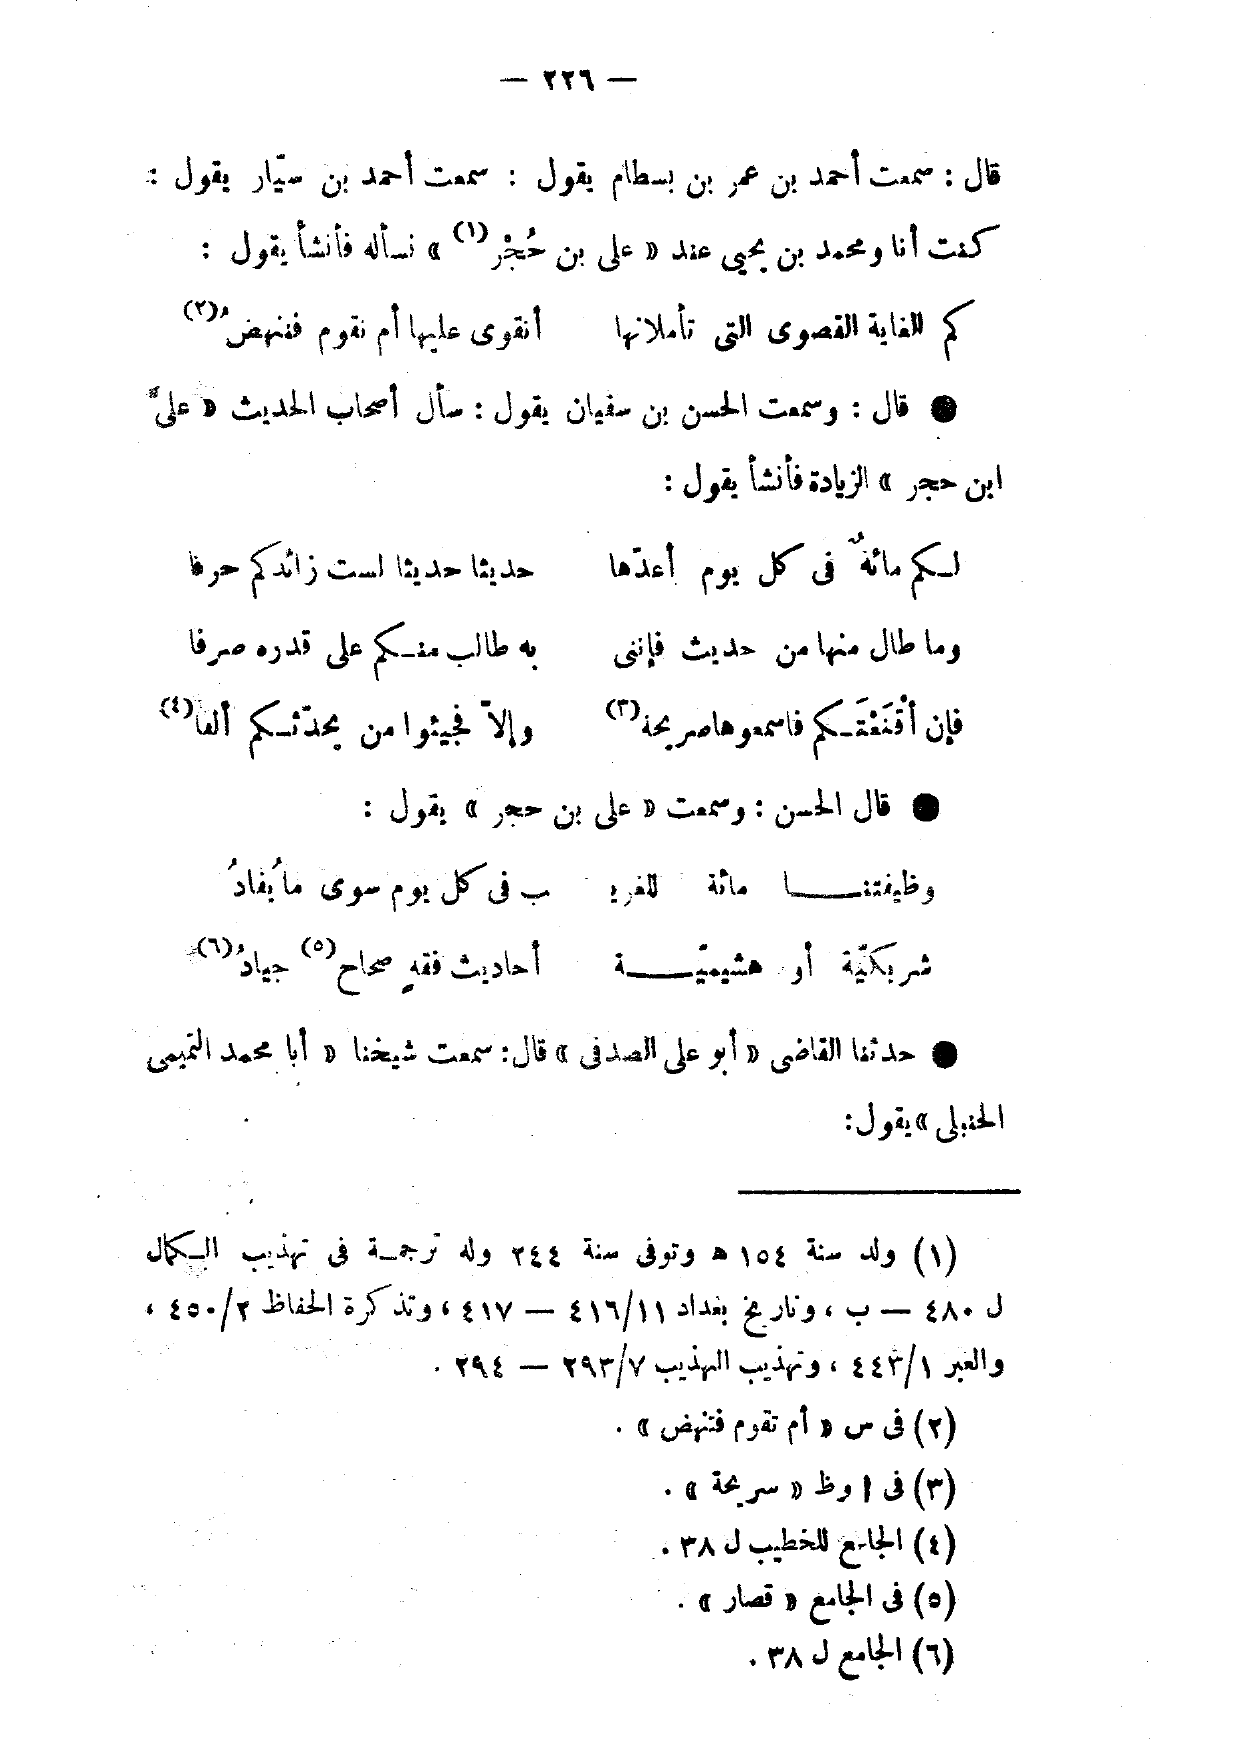 — ٢٢٦ —
قال : سمعت أحمد بن عمر بن بسطام يقول : سمعت أحمد بن سيّار يقول :
كنت أنا ومحمد بن يحيى عند « على بن حُجْر (١) » نسأله فأنشأ يقول :
كم للغاية القصوى التى تأملانها أنقوى عليها أم نقوم فننهضُ (٢)
● قال : وسمعت الحسن بن سفيان يقول : سأل أصحاب الحديث « علىّ
ابن حجر » الزيادة فأنشأ يقول :
لـكم مائةٌ فى كل يوم أعدّها حديثا حديثا لست زائدكم حرفا
وما طال منها من حديث فإننى به طالب منـكم على قدره صرفا
فإن أقْنَعَتْـكم فاسمعوها صريحة (٣) وإلاّ فجيئوا من يحدّثـكم ألفا (٤)
● قال الحسن : وسمعت « على بن حجر » يقول :
وظيفتنـــا مائة للغريـ ـب فى كل يوم سوى ما يُفادُ
شريكيّة أو هشيميّـــة أحاديث فقهٍ صحاح (٥) جيادُ (٦)
● حدثنا القاضى « أبو على الصدفى » قال : سمعت شيخنا « أبا محمد التميمى
الحنبلى » يقول :
(١) ولد سنة ١٥٤ ﻫ وتوفى سنة ٢٤٤ وله ترجمـة فى تهذيب الـكمال
ل ٤٨٠ — ب ، وتاريخ بغداد ٤١٦/١١ — ٤١٧ ، وتذكرة الحفاظ ٤٥٠/٢ ،
والعبر ٤٤٣/١ ، وتهذيب التهذيب ٢٩٣/٧ — ٢٩٤ .
(٢) فى س « أم تقوم فتنهض » .
(٣) فى ا وظ « سريحة » .
(٤) الجامع للخطيب ل ٣٨ .
(٥) فى الجامع « قصار » .
(٦) الجامع ل ٣٨ .